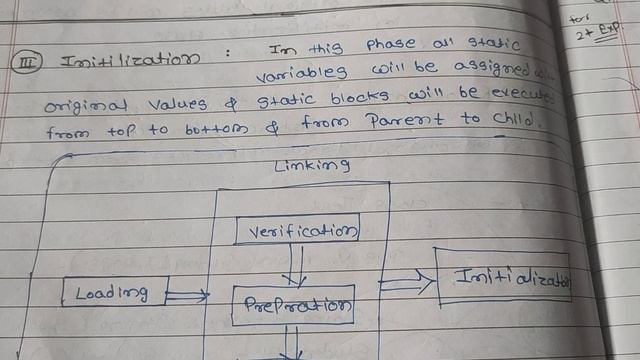 for
2+ Exp
III Initilization : In this phase all static
variables will be assigned with
original values & static blocks will be executed
from top to bottom & from Parent to child.
Linking
Verification
Loading
Prepration
Initialization